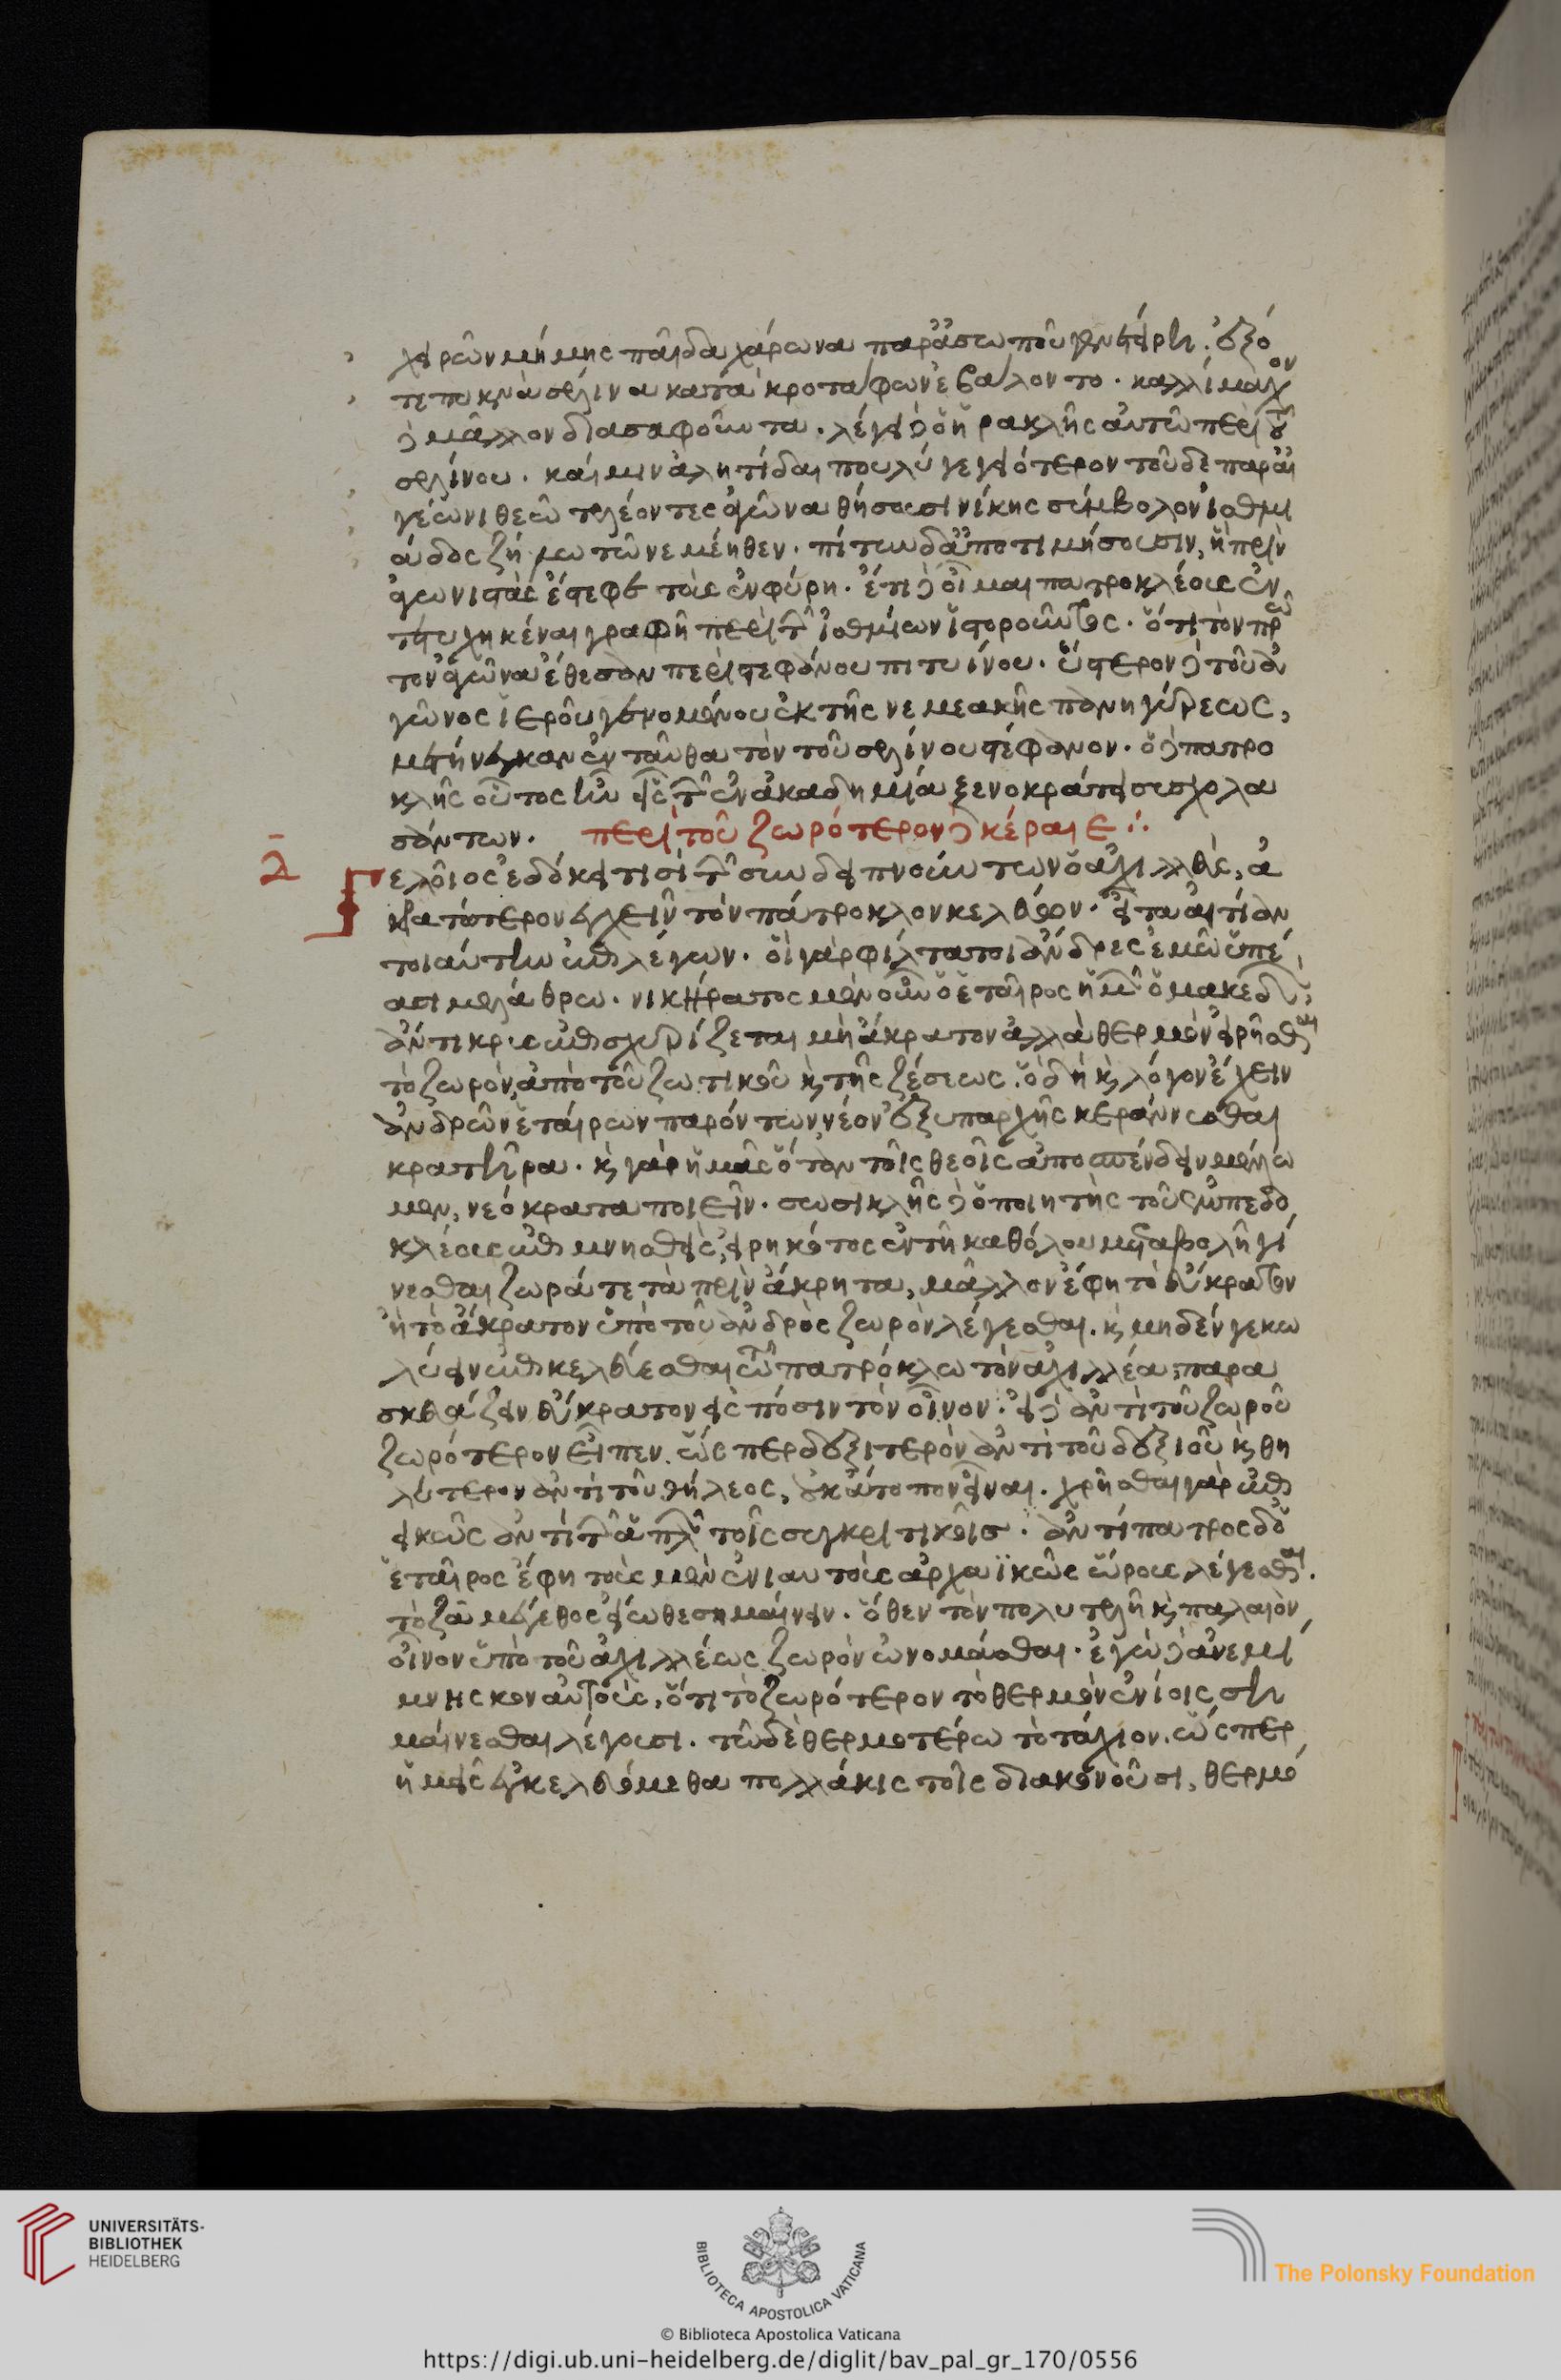 χειρῶν μήμης παῖδα χάρωνα παρ' ἀστωποῦ γενετείρη. ἐξό
τε πυκνὰ σέλινα κατὰ κροτάφων ἐβάλοντο. καλλίμαχον
δὲ μᾶλλον διασαφοῦντα. λέγει δὲ ὁ ἡρακλῆς αὐτῶ περὶ τοῦ
σελίνου. καί μιν ἀλητίδαι πουλὺ γεγειότερον τοῦδε παρ' αἰ
γέωνι θεῶ τελέοντες ἀγῶνα θήσουσι νίκης σύμβολον ἰσθμι
άδος ζήλω τῶν νεμέηθεν. πίτυν δ' ἀποτιμήσουσιν, ἣ πρὶν
ἀγωνιστὰς ἔστεφε τοὺς ἐνφύρη. ἔτι δὲ οἶμαι πατροκλέους ἐν
τετυχηκέναι γραφῆ περὶ τῶν ἰσθμίων ἱστοροῦντος. ὅτι τὸν πρῶ
τον ἀγῶνα ἔθεσαν περὶ στεφάνου πιτυίνου. ὕστερον δὲ τοῦ ἀ
γῶνος ἱεροῦ γενομένου ἐκ τῆς νεμεακῆς πανηγύρεως,
μετήνεγκαν ἐνταῦθα τὸν τοῦ σελίνου στέφανον. ὁ δὲ πατρο
κλῆς οὗτος ἦν εἷς τῶν ἐν ἀκαδημία ξενοκράτει συσχολα
σάντων. περὶ τοῦ ζωρότερον δὲ κέραιε ·:·
δ̅ Γελοῖος ἐδόκει τισὶ τῶν συνδειπνούντων ὁ ἀχιλλεὺς, ἀ
κρατότερον ἐγχεῖν τὸν πάτροκλον κελεύων. εἶτα αἰτίαν
τοιαύτην ἐπιλέγων. οἳ γὰρ φίλτατοι ἄνδρες ἐμῶ ὑπέ
ασι μελάθρω. νικήρατος μὲν οὖν ὁ ἑταῖρος ἡμῶν ὁ μακεδὼν,
ἄντικρυς ἀπισχυρίζεται μὴ ἄκρατον ἀλλὰ θερμὸν εἰρῆσθαι
τὸ ζωρὸν, ἀπὸ τοῦ ζωτικοῦ καὶ τῆς ζέσεως. ὃ δὴ καὶ λόγον ἔχειν
ἀνδρῶν ἑταίρων παρόντων, νέον ἐξυπαρχῆς κεράννυσθαι
κρατῆρα. καὶ γὰρ ἡμᾶς ὅταν τοῖς θεοῖς ἀποσπένδειν μέλλω
μεν, νεόκρατα ποιεῖν. σωσικλῆς δὲ ὁ ποιητὴς τοῦ ἐμπεδο
κλέους ἐπιμνησθεὶς, εἰρηκότος ἐν τῆ καθόλου μεταβολῆ γί
νεσθαι ζωρά τε τὰ πρὶν ἄκρητα, μᾶλλον ἔφη τὸ εὔκρατον
ἢ τὸ ἄκρατον ὑπὸ τοῦ ἀνδρὸς ζωρὸν λέγεσθαι. καὶ μηδέν γε κω
λύειν ἐπικελεύεσθαι τῶ πατρόκλω τὸν ἀχιλλέα, παρα
σκευάζειν εὔκρατον εἰς πόσιν τὸν οἶνον. εἰ δὲ ἀντὶ τοῦ ζωροῦ
ζωρότερον εἶπεν. ὥσπερ δεξιτερὸν ἀντὶ τοῦ δεξιοῦ καὶ θη
λύτερον ἀντὶ τοῦ θήλεος, οὐκ ἄτοπον εἶναι. χρῆσθαι γὰρ ἐπι
εικῶς ἀντὶ τῶν ἁπλῶν τοῖς συγκριτικοῖς. ἀντίπατρος δὲ ὁ
ἑταῖρος ἔφη τοὺς μὲν ἐνιαυτοὺς ἀρχαϊκῶς ὥρους λέγεσθαι.
τὸ ζᾶ μέγεθος εἴωθε σημαίνειν. ὅθεν τὸν πολυτελῆ καὶ παλαιὸν
οἶνον ὑπὸ τοῦ ἀχιλλέως ζωρὸν ὠνομάσθαι. ἐγὼ δὲ ἀνεμί
μνησκον αὐτοὺς, ὅτι τὸ ζωρότερον τὸ θερμὸν ἐνίοις ση
μαίνεσθαι λέγουσι. τῶ δὲ θερμοτέρω τὸ τάχιον. ὥσπερ
ἡμεῖς ἐγκελευόμεθα πολλάκις τοῖς διακονοῦσι, θερμό
UNIVERSITÄTS-
BIBLIOTHEK
HEIDELBERG
BIBLIOTECA APOSTOLICA VATICANA
The Polonsky Foundation
© Biblioteca Apostolica Vaticana
https://digi.ub.uni-heidelberg.de/diglit/bav_pal_gr_170/0556